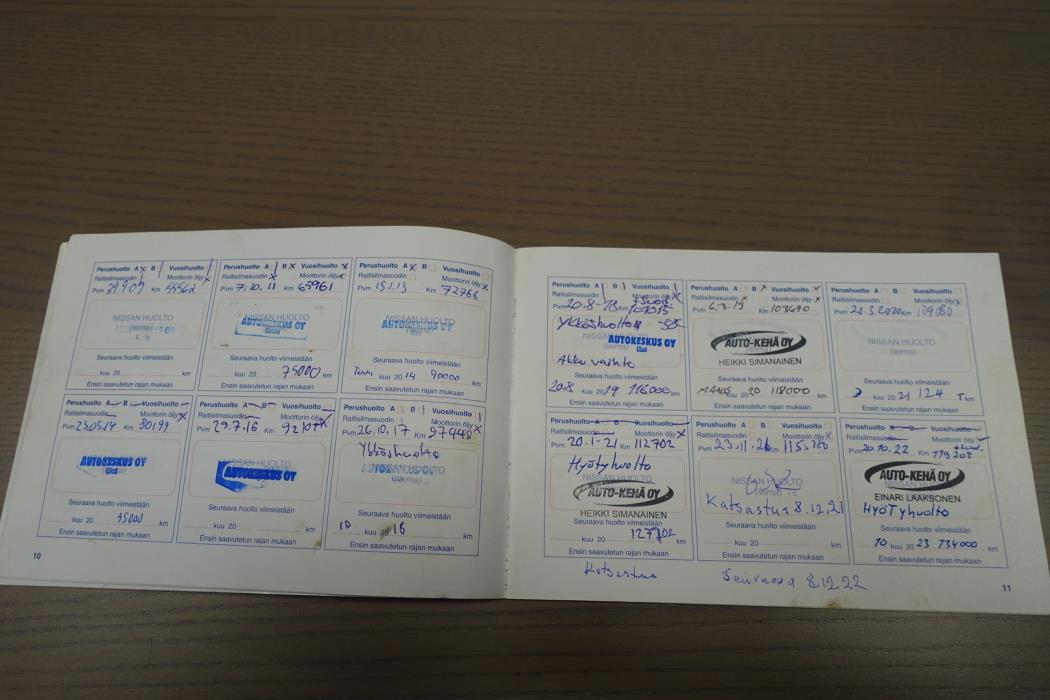 Perushuolto A x B Vuosihuolto
Raitisilmasuodin Moottorin öljy x
Pvm Km 55562
NISSAN HUOLTO
(leima)
Seuraava huolto viimeistään
kuu 20 km
Ensin saavutetun rajan mukaan
Perushuolto A B x Vuosihuolto x
Raitisilmasuodin x Moottorin öljy x
Pvm 7.10.11 Km 65961
NISSAN HUOLTO
AUTOKESKUS OY
Seuraava huolto viimeistään
kuu 20 75000 km
Ensin saavutetun rajan mukaan
Perushuolto A x B Vuosihuolto
Raitisilmasuodin Moottorin öljy x
Pvm 15.1.13 Km 72766
NISSAN HUOLTO
AUTOKESKUS OY
Seuraava huolto viimeistään
kuu 20 14 90000 km
Ensin saavutetun rajan mukaan
Perushuolto A B Vuosihuolto
Raitisilmasuodin Moottorin öljy x
Pvm 23.05.14 Km 80199
AUTOKESKUS OY
Seuraava huolto viimeistään
kuu 20 95000 km
Ensin saavutetun rajan mukaan
Perushuolto A B Vuosihuolto
Raitisilmasuodin Moottorin öljy x
Pvm 29.7.16 Km 92107
NISSAN HUOLTO
AUTOKESKUS OY
Seuraava huolto viimeistään
kuu 20 km
Ensin saavutetun rajan mukaan
Perushuolto A B Vuosihuolto
Raitisilmasuodin Moottorin öljy x
Pvm 26.10.17 Km 97448
Ykköshuolto
NISSAN HUOLTO
Seuraava huolto viimeistään
10 kuu 20 16 km
Ensin saavutetun rajan mukaan
10
Perushuolto A B Vuosihuolto
Raitisilmasuodin Moottorin öljy x
Pvm 20.8-18 Km
Ykköshuolto
NISSAN HUOLTO
AUTOKESKUS OY
Akku vaihto
Seuraava huolto viimeistään
20.8 19 116000 km
Ensin saavutetun rajan mukaan
Perushuolto A B Vuosihuolto
Raitisilmasuodin x Moottorin öljy x
Pvm 6.3.19 Km 103670
NISSAN HUOLTO
AUTO-KEHÄ OY
HEIKKI SIMANAINEN
Seuraava huolto viimeistään
kuu 20 118000 km
Ensin saavutetun rajan mukaan
Perushuolto A B Vuosihuolto
Raitisilmasuodin Moottorin öljy x
Pvm 20.5.2020 Km 109080
NISSAN HUOLTO
(leima)
Seuraava huolto viimeistään
kuu 20 21 124 T km
Ensin saavutetun rajan mukaan
Perushuolto A B Vuosihuolto
Raitisilmasuodin Moottorin öljy x
Pvm 20.1-21 Km 112702
Hyötyhuolto
NISSAN HUOLTO
AUTO-KEHÄ OY
HEIKKI SIMANAINEN
Seuraava huolto viimeistään
kuu 20 127702 km
Ensin saavutetun rajan mukaan
Perushuolto A B Vuosihuolto
Raitisilmasuodin Moottorin öljy x
Pvm 23.11.21 Km 115.760
NISSAN HUOLTO
(leima)
Katsastus 8.12.21
Seuraava huolto viimeistään
kuu 20 km
Ensin saavutetun rajan mukaan
Perushuolto A B Vuosihuolto
Raitisilmasuodin Moottorin öljy
Pvm 20.10.22 Km 119208
NISSAN HUOLTO
AUTO-KEHÄ OY
EINARI LAAKSONEN
HYÖTyhuolto
Seuraava huolto viimeistään
10 kuu 20 23 134000 km
Ensin saavutetun rajan mukaan
Katsastus Seuraava 8.12.22
11